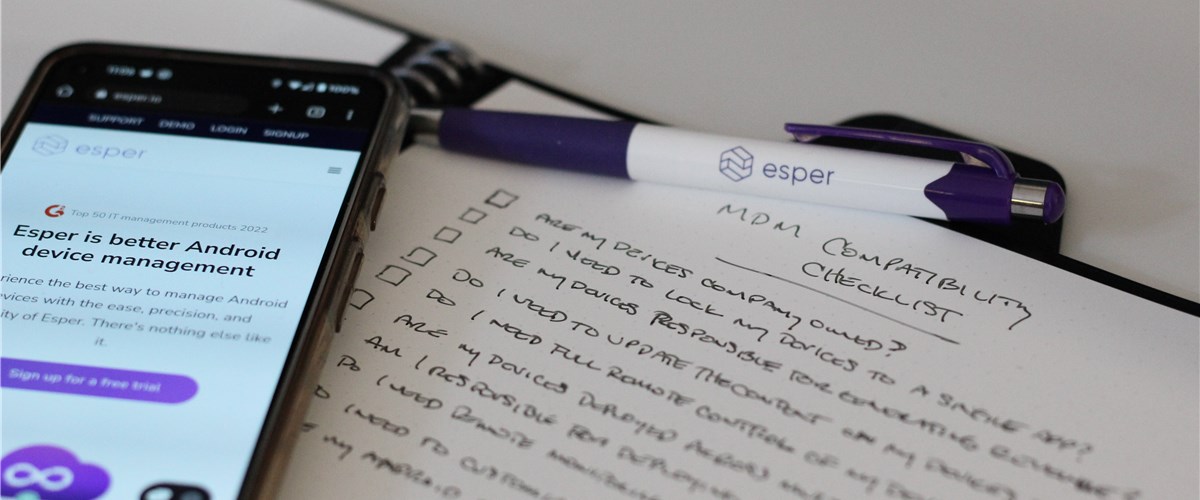 11:09
100%
esper.io
SUPPORT DEMO LOGIN SIGNUP
esper
Top 50 IT management products 2022
Esper is better Android
device management
rience the best way to manage Android
vices with the ease, precision, and
ity of Esper. There's nothing else like
it.
Sign up for a free trial
esper
MDM COMPATIBILITY
CHECKLIST
ARE MY DEVICES COMPANY OWNED?
DO I NEED TO LOCK MY DEVICES TO A SINGLE APP?
ARE MY DEVICES RESPONSIBLE FOR GENERATING REVENUE?
DO I NEED TO UPDATE THE CONTENT ON MY DEVICES
DO I NEED FULL REMOTE CONTROL OF MY
ARE MY DEVICES DEPLOYED ACROSS
AM I RESPONSIBLE FOR DEPLOYING
DO I NEED REMOTE
I NEED TO
MY